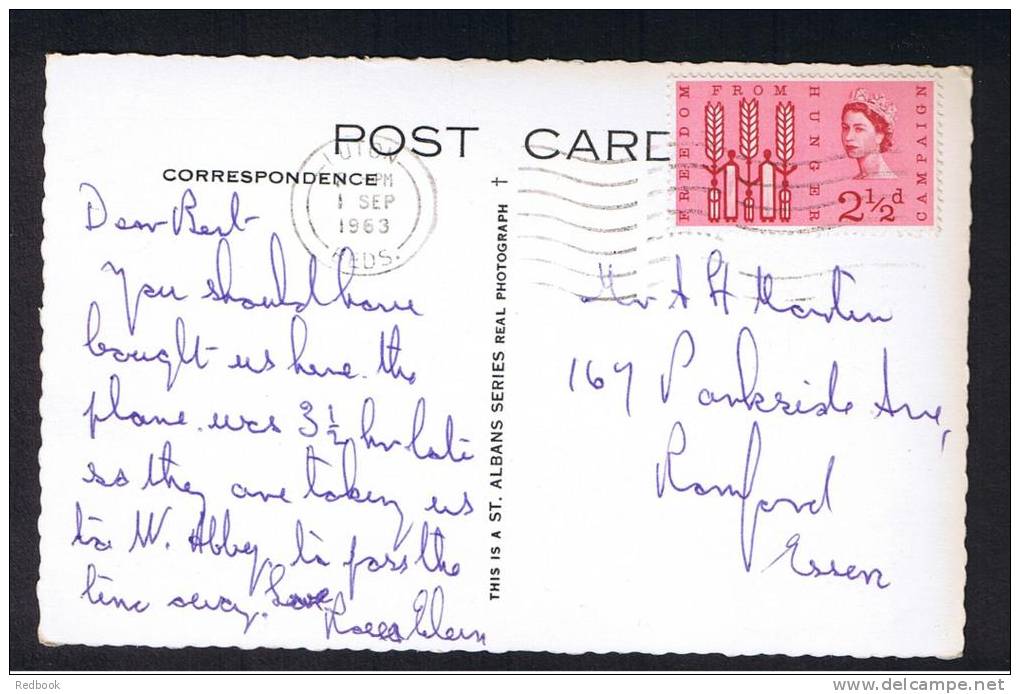 POST CARD
CORRESPONDENCE
LUTON
PM
1 SEP
1963
BEDS.
FREEDOM FROM HUNGER CAMPAIGN
2½d
Dear Bert
You should have
bought us here. the
plane. was 3½ hr late
so they are taking us
to W. Abbey. to pass the
time away. Love
THIS IS A ST. ALBANS SERIES REAL PHOTOGRAPH
Mr A H Martin
167 Parkside Ave,
Romford
Essex
Redbook
delcampe.net